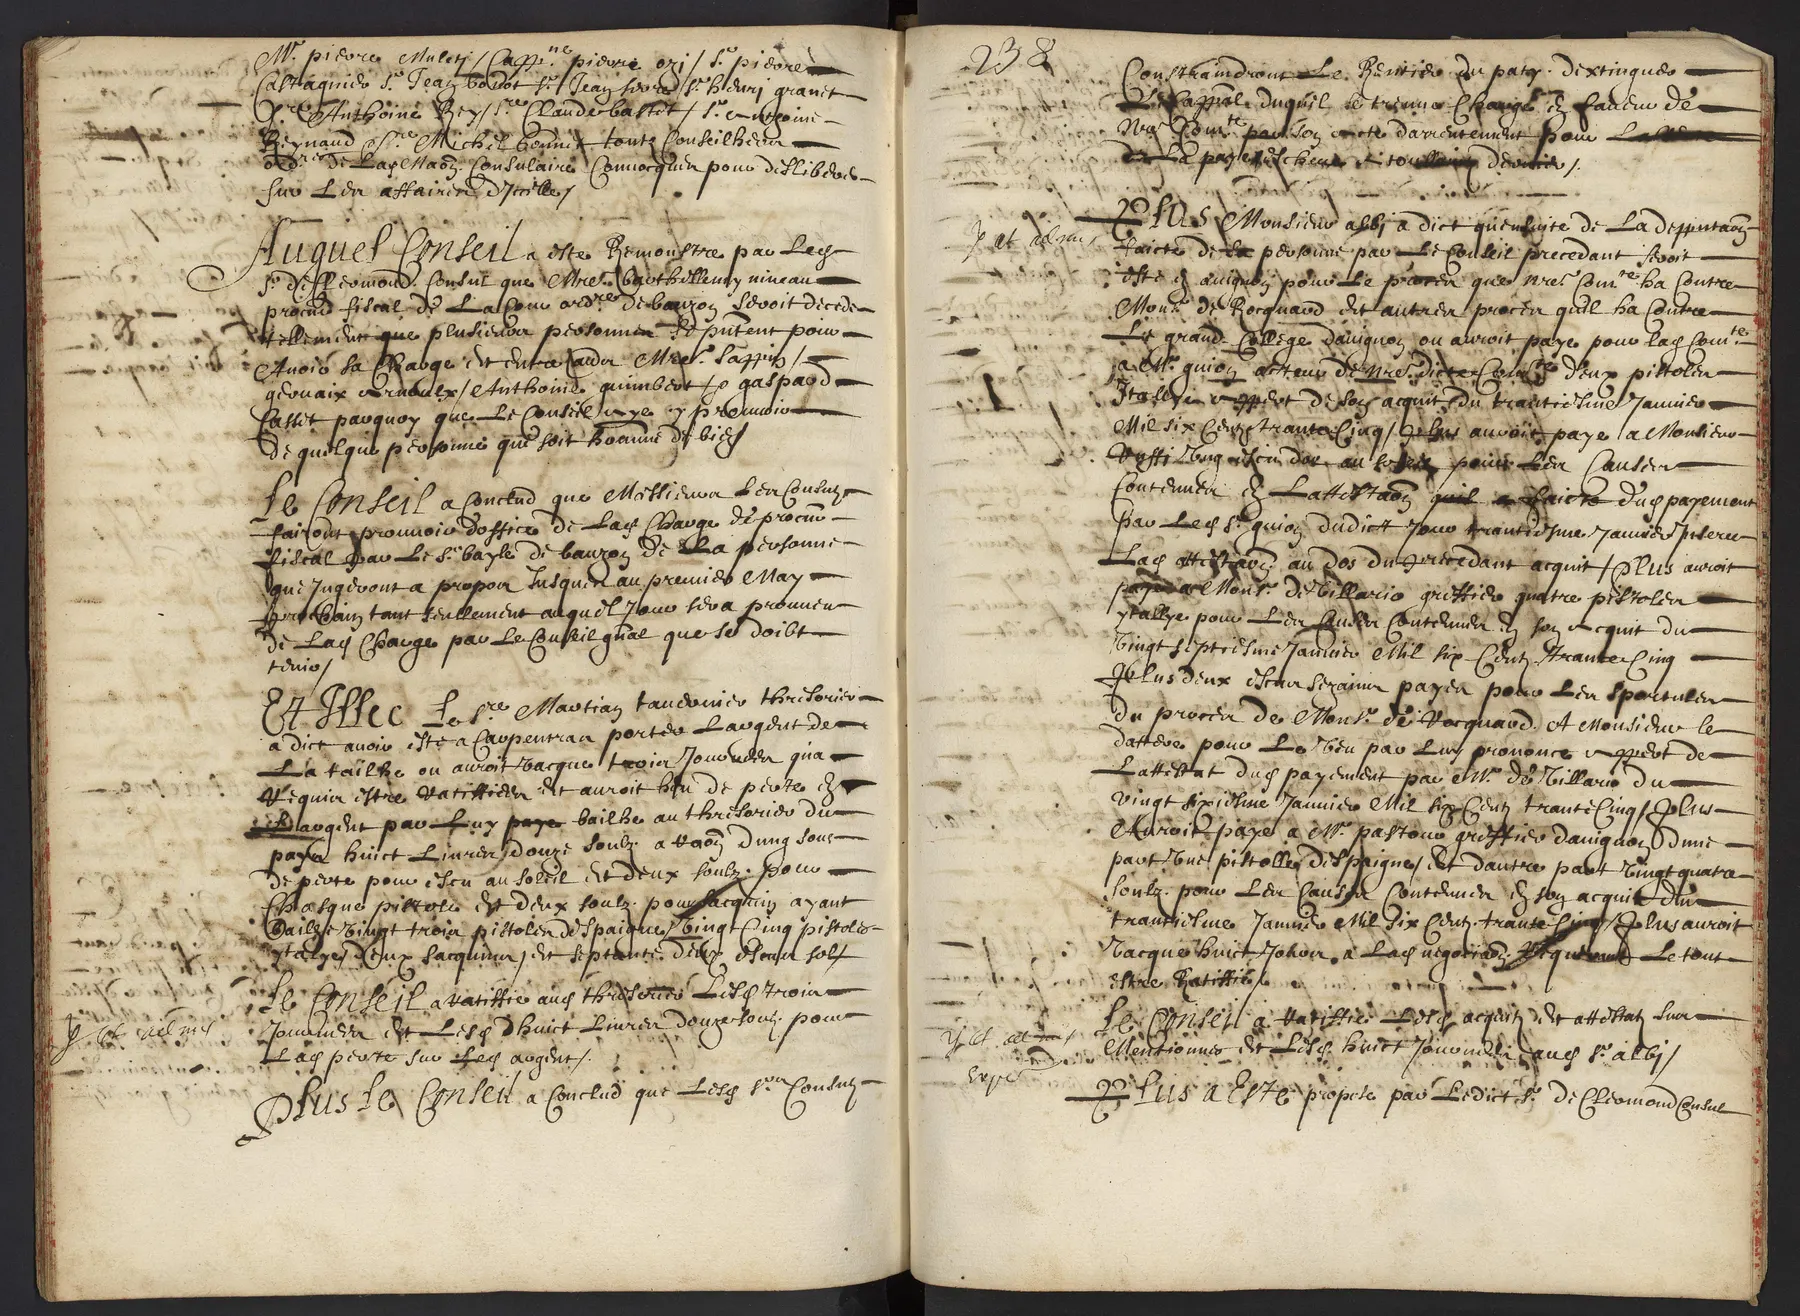 Mr. pierre Muleti / Cappne. pierre ori / Sr. pierre
Castagnier Sr. Jean bodot Sr. Jean serre Sr. henri granet
Sre. Anthoine Rey / Sre. Claude bastet / Sr. Anthoine
Reynaud Sre. Michel bonnet touts Conseilhers
de Lad Maon Consulaire Convocques pour deslibérer
sur Les affaires d'icelle /
Auquel Conseil a este Remonstre par Led
Sr. de Clermond Consul que Mre. barthellemy nineau
procur fiscal de La Cour ordre de bauzon seroit decede
tellement que plusieurs personnes se pntent pour
Avoir La Charge et entre autres Mre. Sappin /
gervaix arnoulx / Anthoine guimbert / gaspard
Castet parquoy que Le Conseil aye y prouvoir
de quelque personne que soit homme de bien /
Le Conseil a Conclud que Messieurs Les Consulz
fairont prouvoir d'office de Lad Charge de procur
fiscal par Le Sr. bayle de bauzon de La personne
que Jugeront a propos Jusques au premier May
prochain tant seullement auquel Jour sera prouveu
de Lad Charge par Le Conseil gnal que se doibt
tenir /
Et Illec Le Sre. Martian tavernier thresorier
a dict avoir este a Carpentras porter L'argent de
La tailhe ou auroit vacque trois Journees qua
Requis estre ratiffiees et auroit heu de perte en
argent par Luy paye bailhe au thresorier du
pays huict Livres douze soulz a raon d'ung soul
de perte pour escu au soleil et deux soulz pour
Chasque pistole et deux soulz pour sacquin ayant
baillé vingt trois pistoles d'Espaigne / Vingt Cinq pistoles
ytalye / deux sacquins / et septante deux escus sol /
Le Conseil a ratiffie aud thresorier Lesd trois
Journees et Lesd d'huict Livres douze soulz pour
Lad perte sur Led argent /.
Plus Le Conseil a Conclud que Lesd Srs Consulz
238
Constraindront Le Rentier du paty d'extinguer
Le Cappal duquel se treuve Charge en faveur de
par son acte d'arrentement pour
de La paye escheue a toussainz dernier /.
Plus Monsieur albi a dict qu'ensuite de La depputaon
faicte de sa personne par Le Conseil precedant seroit
este en avignon pour Le proces que nre Comte. ha Contre
Monsr. de Rocquard et autres proces qu'il ha Contre
Le grand College d'avignon ou auroit paye pour Lad Comte.
a Mr. guion acteur de nre. dicte Comte. deux pistoles
Itallye appert de son acquit du trantiesme Janvier
Mil six Centz trante Cinq / Plus auroit paye a Monsieur
Ruffi Vng escu d'or au soleil pour Les Causes
Contenues en L'attestaon quil a faicte dud payement
par Led Sr. guion dudict Jour trantiesme Janvier Inseree
Lad attestaon au dos du precedant acquit / Plus auroit
paye a Monsr. de Villario greffier quatre pistoles
ytallye pour Les Causes Contenues en son acquit du
Vingt septiesme Janvier Mil six Centz trante Cinq
Plus deux escus sezains payes pour Les sportules
du proces de Monsr. de Rocquard et Monsieur le
dattere pour Le Veu par Luy prononce appert de
L'attestat dud payement par Mr. de Villario du
vingt sixiesme Janvier Mil six Centz trante Cinq / Plus
Auroit paye a Mr. pastour greffier d'avignon d'une
part Vne pistolle d'Espaigne / Et d'autre part Vingt quatre
soulz pour Les Causes Contenues en son acquit du
trantiesme Janvier Mil six Centz trante Cinq / Plus auroit
Vacque huict Jours a Lad negociaon Requerant Le tout
estre Ratiffié /
Le Conseil a ratiffie Lesd acquitz et attestatz sur
Mentionnes et Lesd huict Journees aud Sr. albi /
Plus a Este propose par Ledict Sr. de Clermond Consul